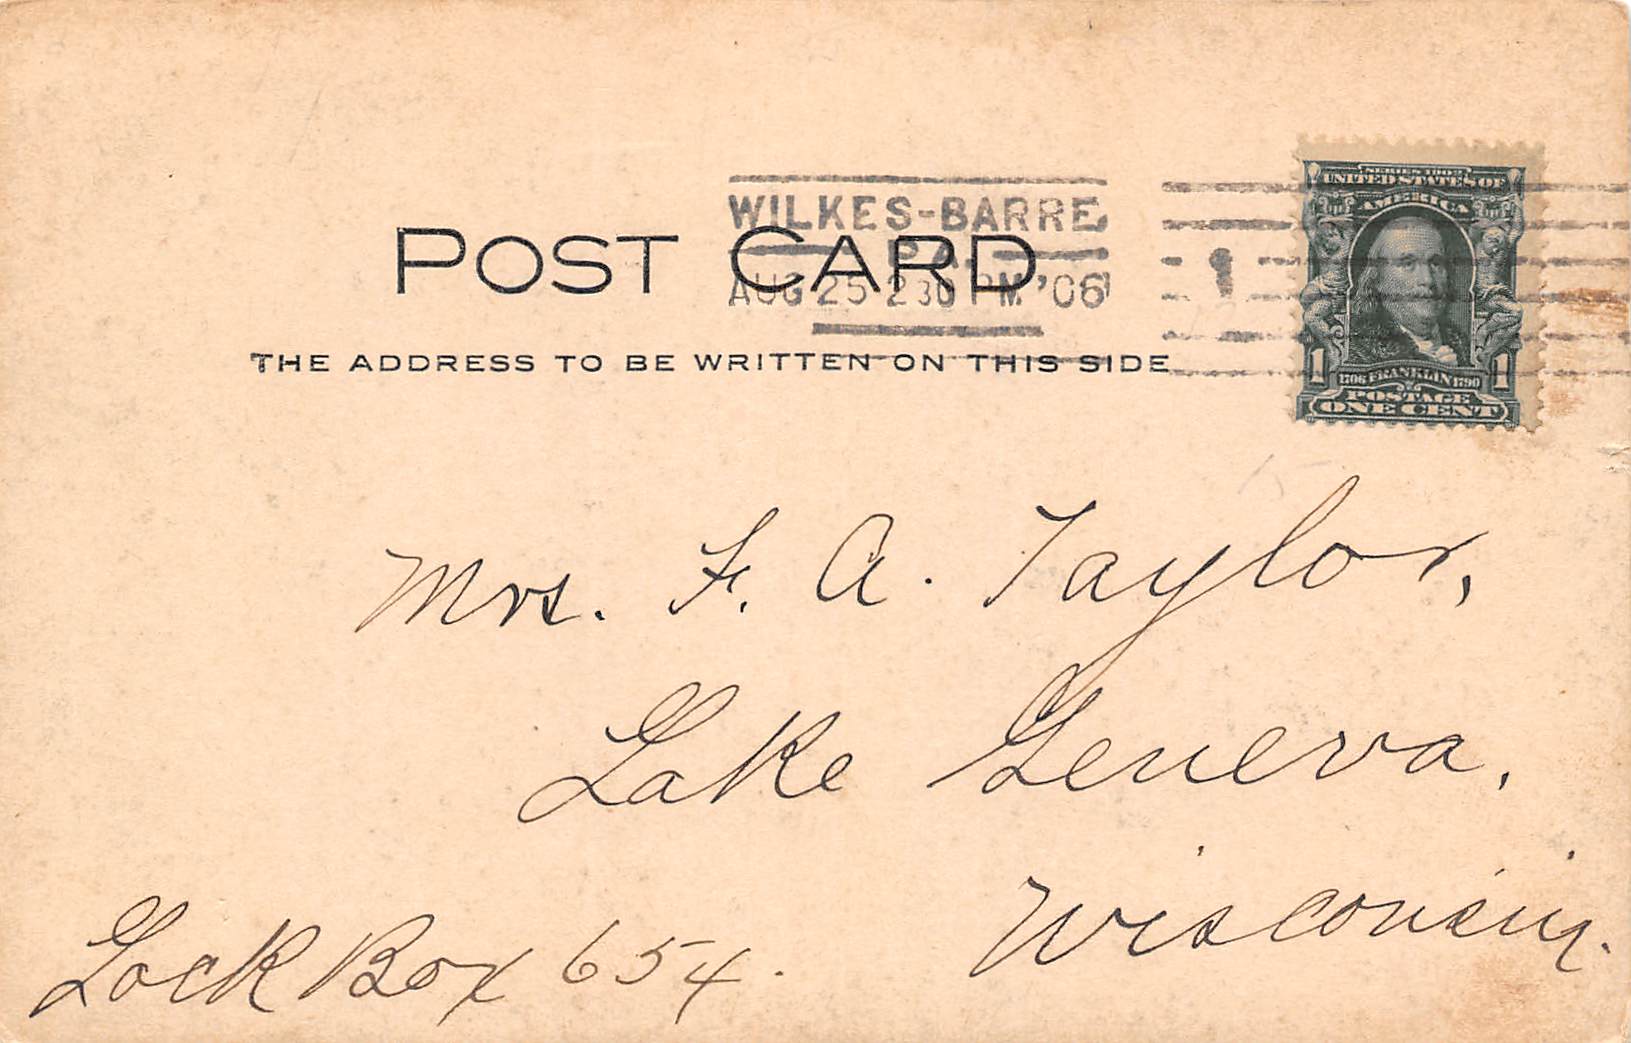 WILKES-BARRE
PA.
AUG 25 2 30 PM '06
POST CARD
THE ADDRESS TO BE WRITTEN ON THIS SIDE
SERIES 1902
UNITED STATES OF
AMERICA
1 1706 FRANKLIN 1790 1
POSTAGE
ONE CENT
Mrs. F. A. Taylor,
Lake Geneva,
Wisconsin.
Lock Box 654.